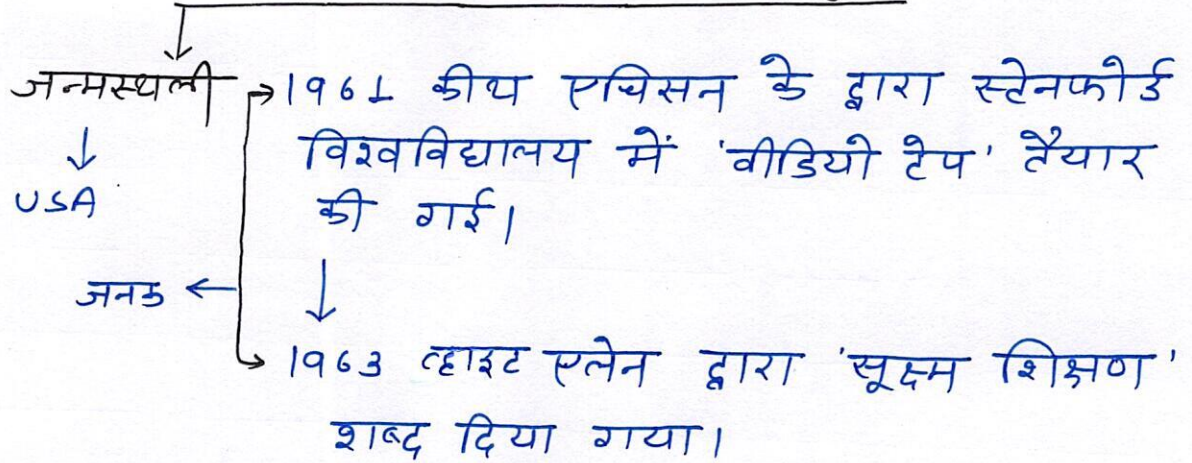 जन्मस्थली → 1961 कीथ एचिसन के द्वारा स्टेनफोर्ड
विश्वविद्यालय में 'वीडियो टेप' तैयार
USA
की गई।
जनक ←
1963 व्हाइट एलेन द्वारा 'सूक्ष्म शिक्षण'
शब्द दिया गया।